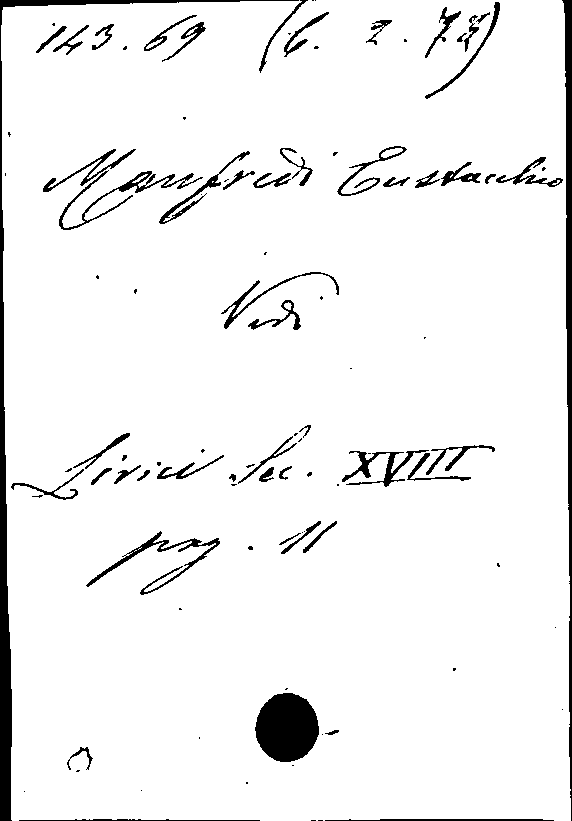 143.69 (6. 2. 73)
Manfredi Eustacchio
Vedi
Lirici Sec. XVIII
pag. 11